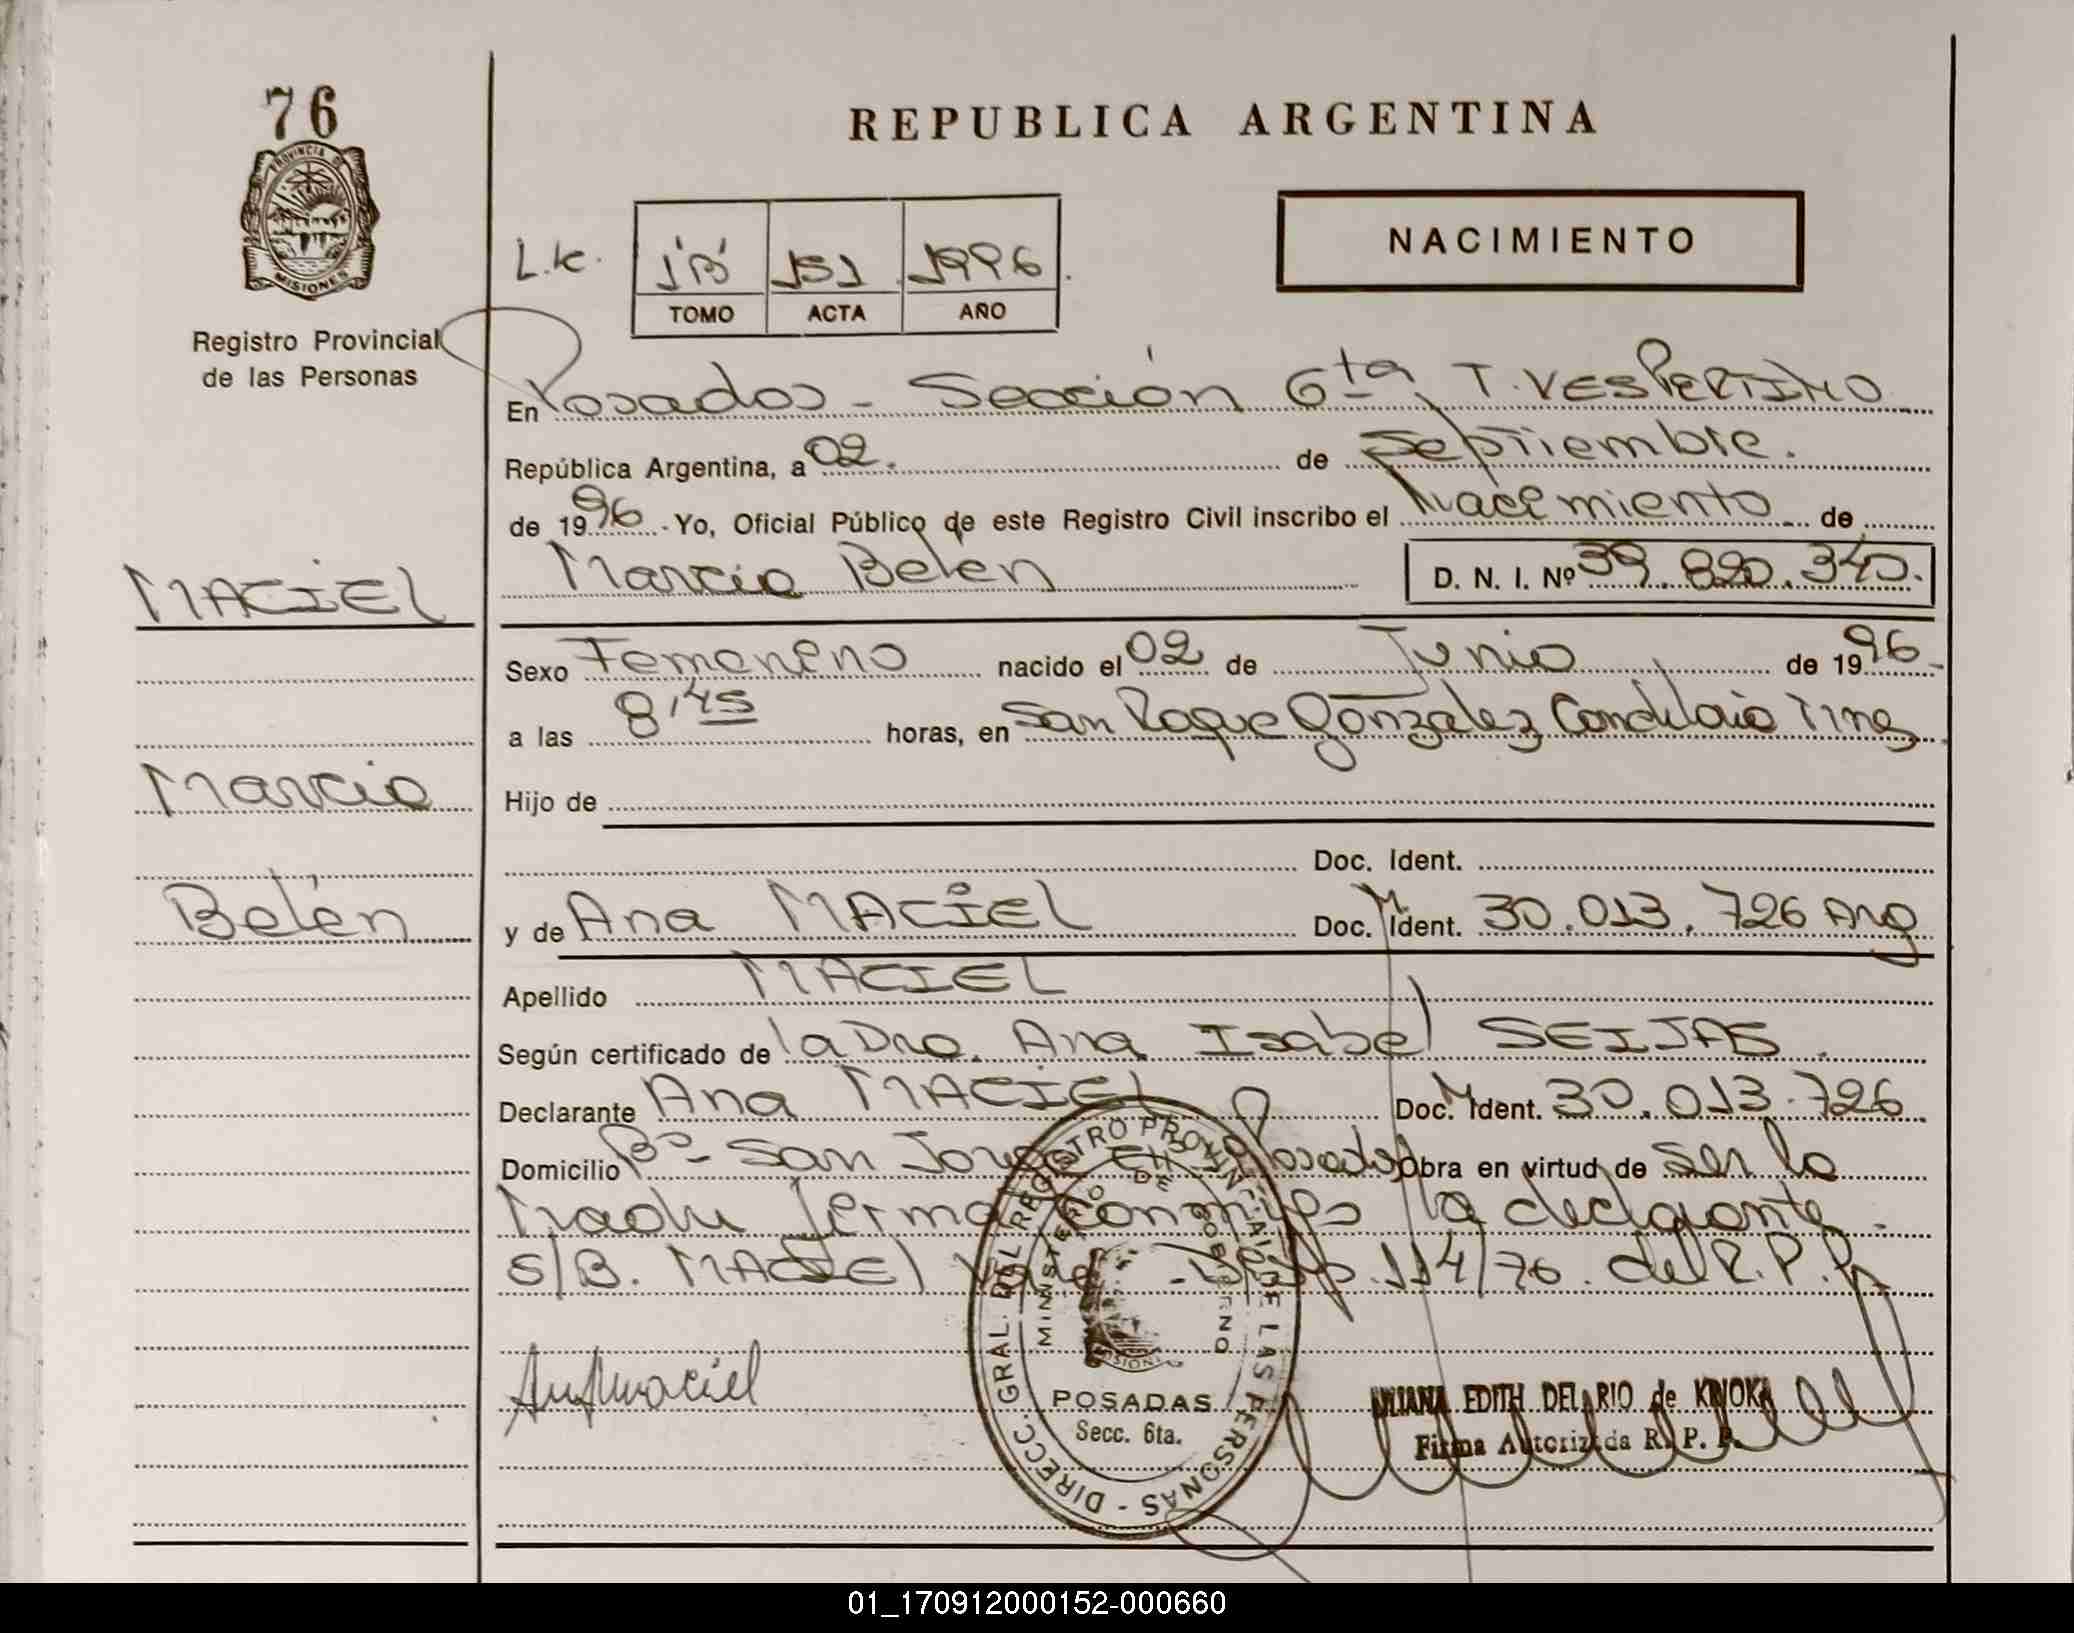 76
PROVINCIA DE
MISIONES
Registro Provincial
de las Personas
REPUBLICA ARGENTINA
NACIMIENTO
1"B" 151 1996
TOMO ACTA AÑO
En Posadas - Sección 6ta, T. VESPERTINO
República Argentina, a 02. de Septiembre.
de 1996 - Yo, Oficial Público de este Registro Civil inscribo el Nacimiento de
Marcia Belén D. N. I. Nº 39.820.340.
MACIEL
Marcia
Belén
Sexo Femenino nacido el 02 de Junio de 1996
a las 8,45 horas, en San Roque Gonzalez Candelaria
Hijo de
Doc. Ident.
y de Ana MACIEL Doc. Ident. M 30.013.726 Arg
Apellido MACIEL
Según certificado de la Dra. Ana Isabel SEIJAS.
Declarante Ana MACIEL Doc. Ident. M 30.013.726
Domicilio Bº San Jorge Posadas Obra en virtud de ser la
Madre firma conmigo la declarante.
S/B. MACIEL Vale - Disp. 114/76. del R.P.P.
AnaMaciel
DIRECC. GRAL. DEL REGISTRO PROVINCIAL DE LAS PERSONAS -
MINISTERIO DE GOBIERNO
MISIONES
POSADAS
Secc. 6ta.
JULIANA EDITH DEL RIO de KWOKA
Firma Autorizada R. P. P.
01_170912000152-000660